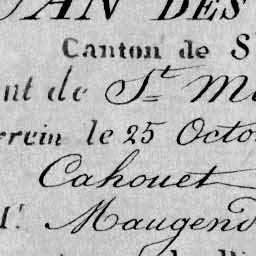 AN DES
Canton de S
nt de St M
errein le 25 Octo
Cahouet
Mr. Maugend